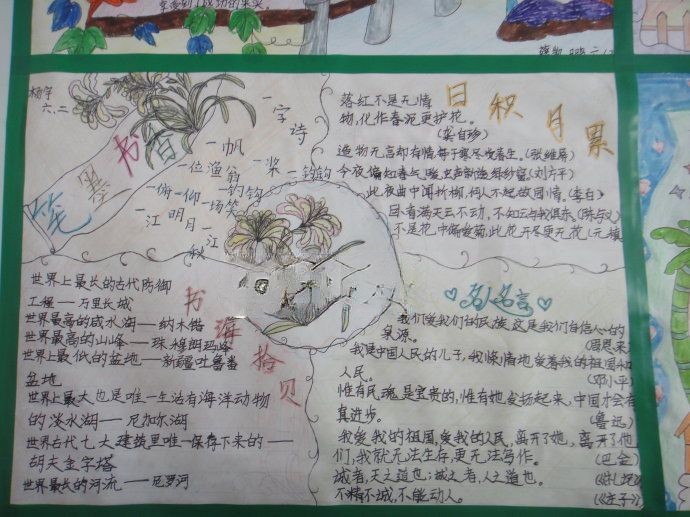 享受到了成功的果实。
杨宇
六.二
笔墨书香
一字诗
一帆一桨
一位渔翁一钓钩
一俯一仰一场笑
一江明月一江秋
日积月累
落红不是无情
物,化作春泥更护花。
(龚自珍)
造物无言却有情,每于寒尽觉春生。(张维屏)
今夜偏知春气暖,虫声新透绿纱窗(刘方平)
此夜曲中闻折柳,何人不起故园情。(李白)
卧看满天云不动,不知云与我俱东(陈与义)
不是花中偏爱菊,此花开尽更无花(元稹
书海拾贝
世界上最长的古代防御
工程——万里长城
世界最高的咸水湖——纳木错
世界最高的山峰——珠穆朗玛峰
世界上最低的盆地——新疆吐鲁番
盆地
世界上最大也是唯一生活有海洋动物
的淡水湖——尼加尔湖
世界古代七大建筑里唯一保存下来的——
胡夫金字塔
世界最长的河流——尼罗河
名人名言
我们爱我们的民族,这是我们自信心的
泉源。
(周恩来
我是中国人民的儿子,我深情地爱着我的祖国和
人民。
(邓小平)
惟有民魂是宝贵的,惟有她发扬起来,中国才会有
真进步。
(鲁迅)
我爱我的祖国,爱我的人民,离开了她,离开了他
们,我就无法生存,更无法写作。
(巴金)
诚者,天之道也;诚之者,人之道也。
《礼记》
不精不诚,不能动人。
《庄子》